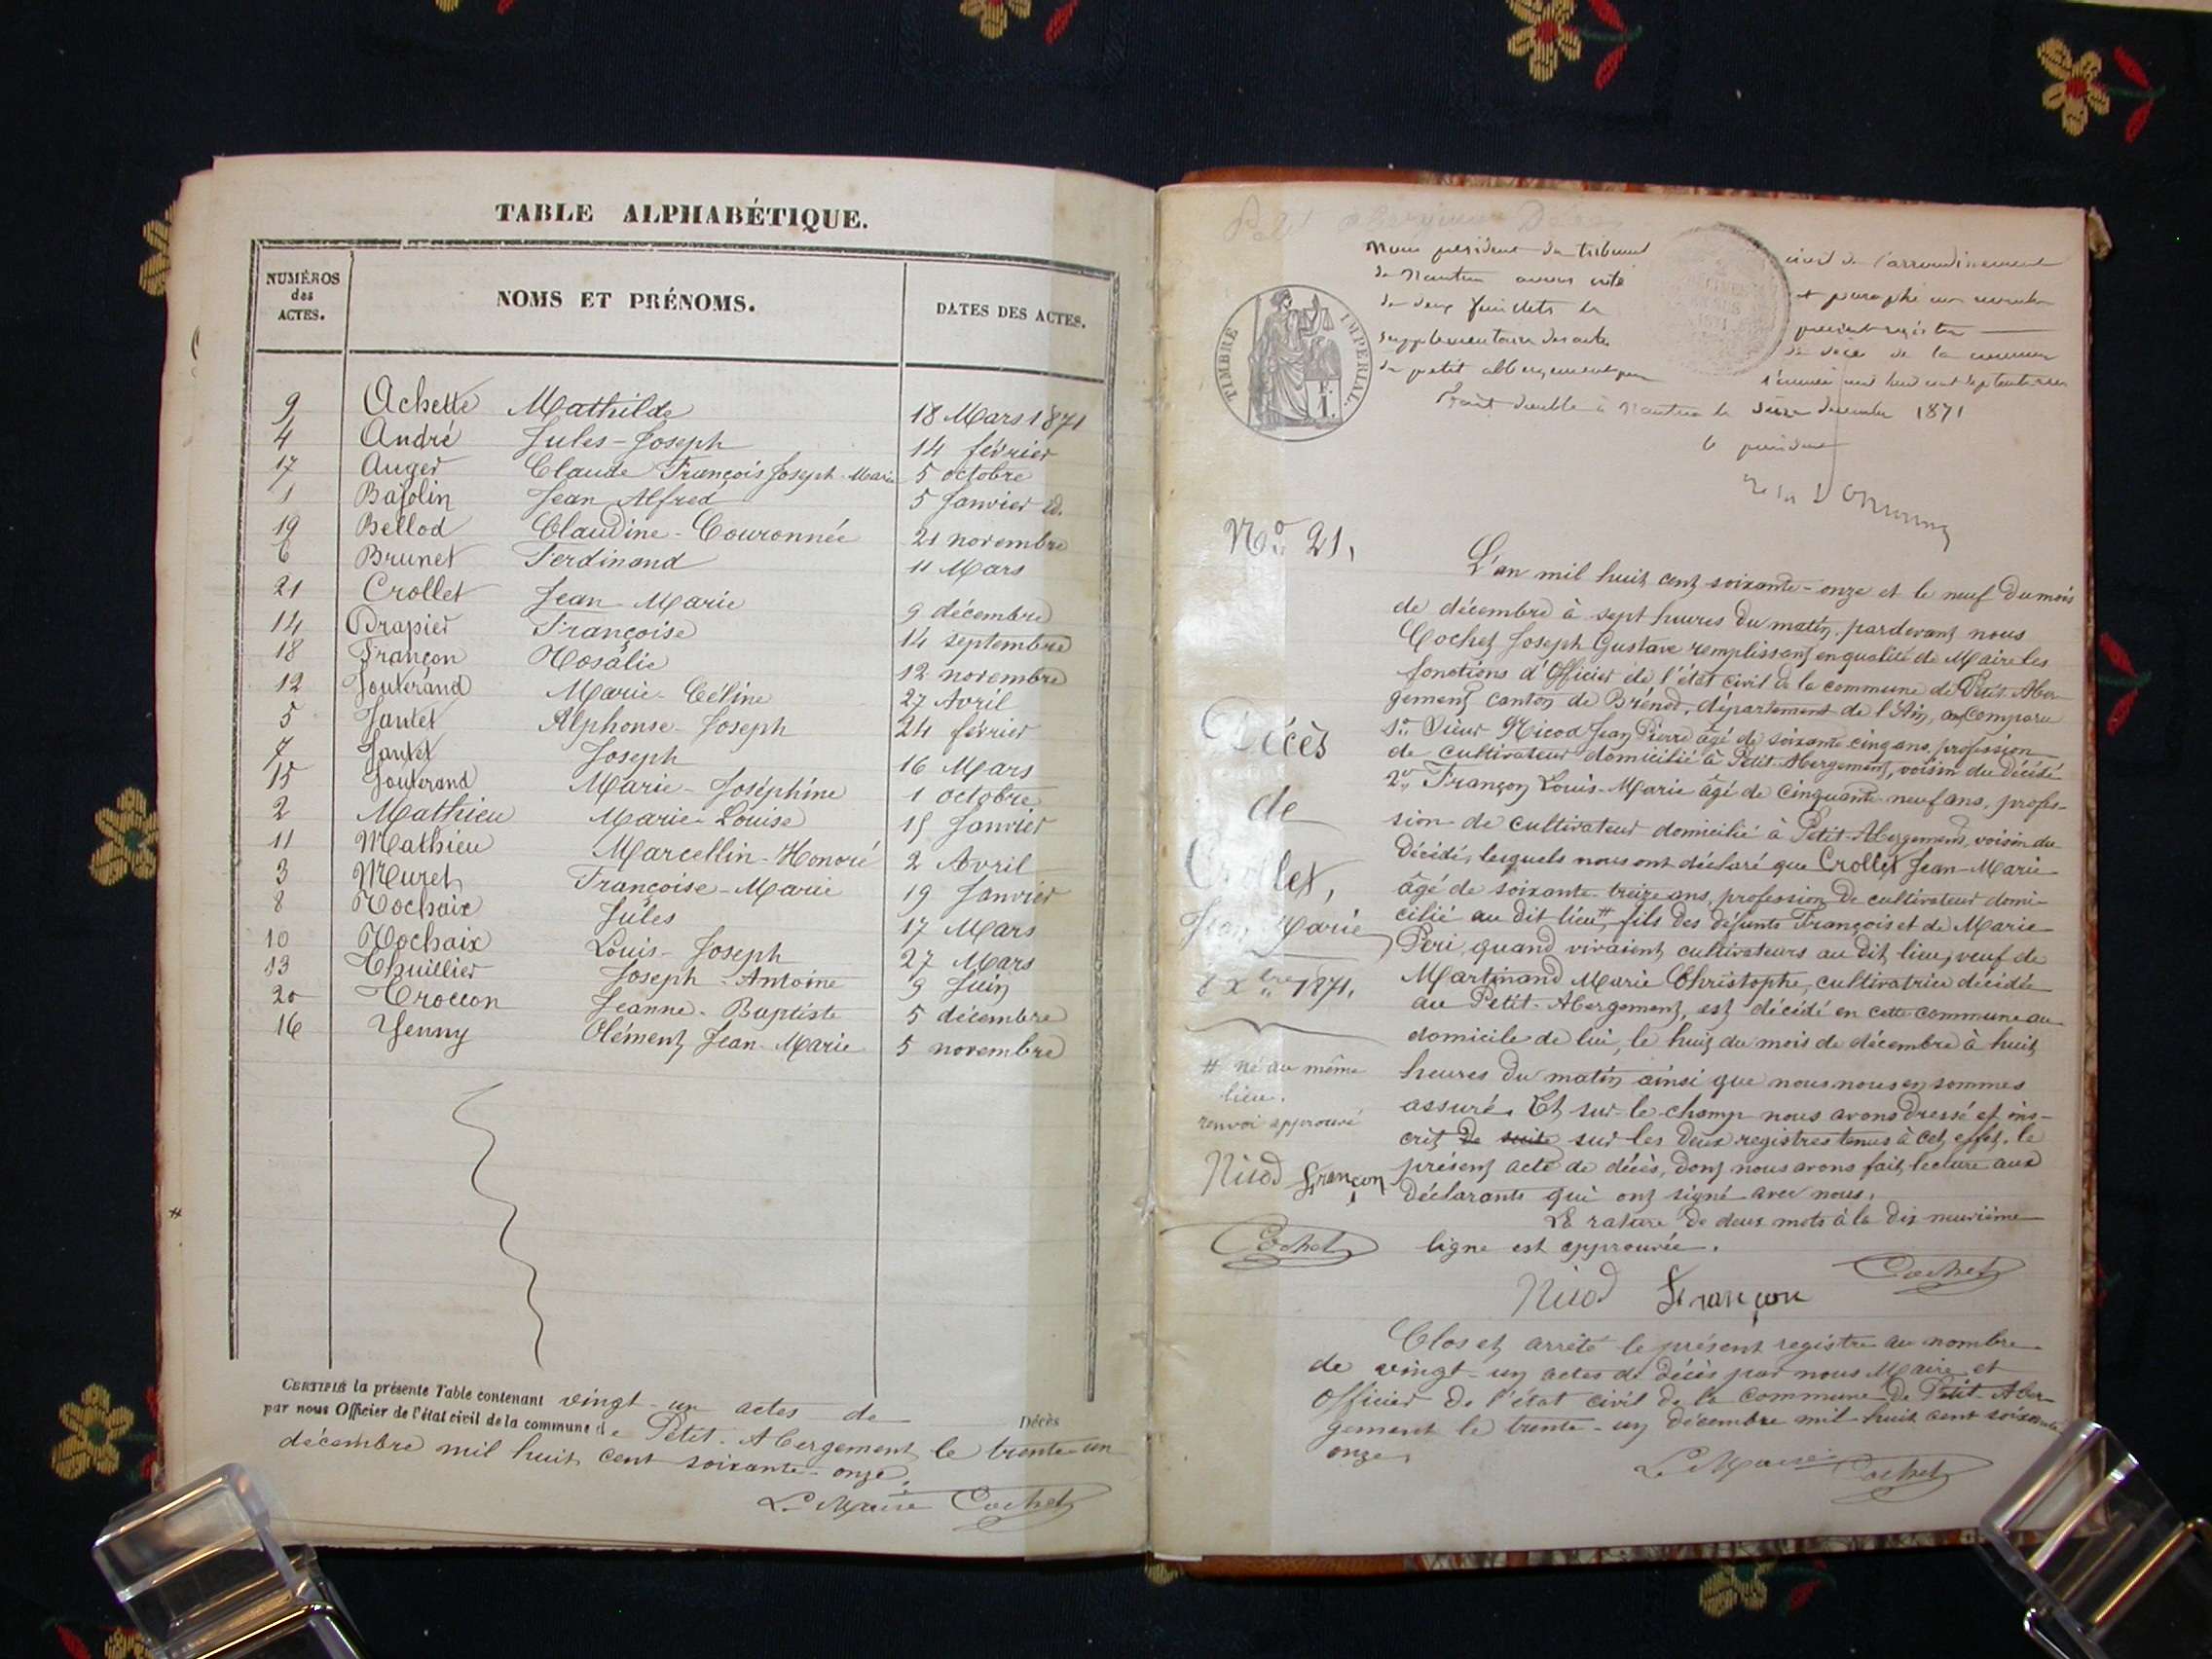 TABLE ALPHABÉTIQUE.
NUMÉROS des ACTES.
NOMS ET PRÉNOMS.
DATES DES ACTES.
9 Achette Mathilde 18 Mars 1871
4 André Jules-Joseph 14 février
17 Auger Claude François Joseph-Marie 5 octobre
1 Bajolin Jean Alfred 5 Janvier id.
19 Bellod Claudine-Couronnée 21 novembre
6 Brunet Ferdinand 11 Mars
21 Crollet Jean-Marie 9 décembre
14 Drapier Françoise 14 septembre
18 Françon Rosalie 12 novembre
12 Jouterand Marie-Céline 27 Avril
5 Jantet Alphonse-Joseph 24 février
7 Jantet Joseph 16 Mars
15 Jouterand Marie-Joséphine 1 octobre
2 Mathieu Marie-Louise 15 Janvier
11 Mathieu Marcellin-Honoré 2 Avril
3 Muret Françoise-Marie 19 Janvier
8 Rochaix Jules 17 Mars
10 Rochaix Louis-Joseph 27 Mars
13 Thuillier Joseph-Antoine 9 Juin
20 Troccon Jeanne-Baptiste 5 décembre
16 Yenny Clément Jean-Marie 5 novembre
CERTIFIÉ la présente Table contenant vingt-un actes de Décès
par nous Officier de l'état civil de la commune de Petit-Abergement le trente-un
décembre mil huit cent soixante-onze.
Le Maire Cochet
Nous president du tribunal civil de l'arrondissement
de Nantua avons coté et paraphé
de deux feuillets le present registre
supplementaire des actes de décès de la commune
du petit abbergement pour l'année mil huit cent soixante onze
Fait double à Nantua le seize decembre 1871
le president
TIMBRE IMPERIAL.
F. 1.
No. 21.
Décès
de
Crollet,
Jean Marie
8 Xbre 1871.
# né au même
lieu.
renvoi approuvé
Nicod Françon
Cochet
L'an mil huit cent soixante-onze et le neuf du mois
de décembre à sept heures du matin, pardevant nous
Cochet Joseph Gustave remplissant en qualité de Maire les
fonctions d'Officier de l'état civil de la commune de Petit-Aber-
gement canton de Brénod, département de l'Ain, ont comparu
1o. Sieur Nicod Jean Pierre âgé de soixante cinq ans, profession
de cultivateur domicilié à Petit-Abergement, voisin du décédé
2o. Françon Louis-Marie âgé de cinquante-neuf ans, profes-
sion de cultivateur domicilié à Petit-Abergement, voisin du
décédé, lesquels nous ont déclaré que Crollet Jean-Marie
âgé de soixante-treize ans, profession de cultivateur domi-
cilié au dit lieu #, fils des défunts François et de Marie
Peri, quand vivaient cultivateurs au dit lieu, veuf de
Martinand Marie Christophe, cultivatrice décédée
au Petit-Abergement, est décédé en cette commune au
domicile de lui, le huit du mois de décembre à huit
heures du matin ainsi que nous nous en sommes
assuré. Et sur-le-champ nous avons dressé et ins-
crit de suite sur les deux registres tenus à cet effet, le
présent acte de décès, dont nous avons fait lecture aux
déclarants qui ont signé avec nous.
La rature de deux mots à la dix neuvième
ligne est approuvée.
Cochet
Nicod Françon
Clos et arrêté le présent registre au nombre
de vingt-un actes de décès par nous Maire et
Officier de l'état civil de la commune de Petit-Aber-
gement le trente-un décembre mil huit cent soixante
onze,
Le Maire Cochet